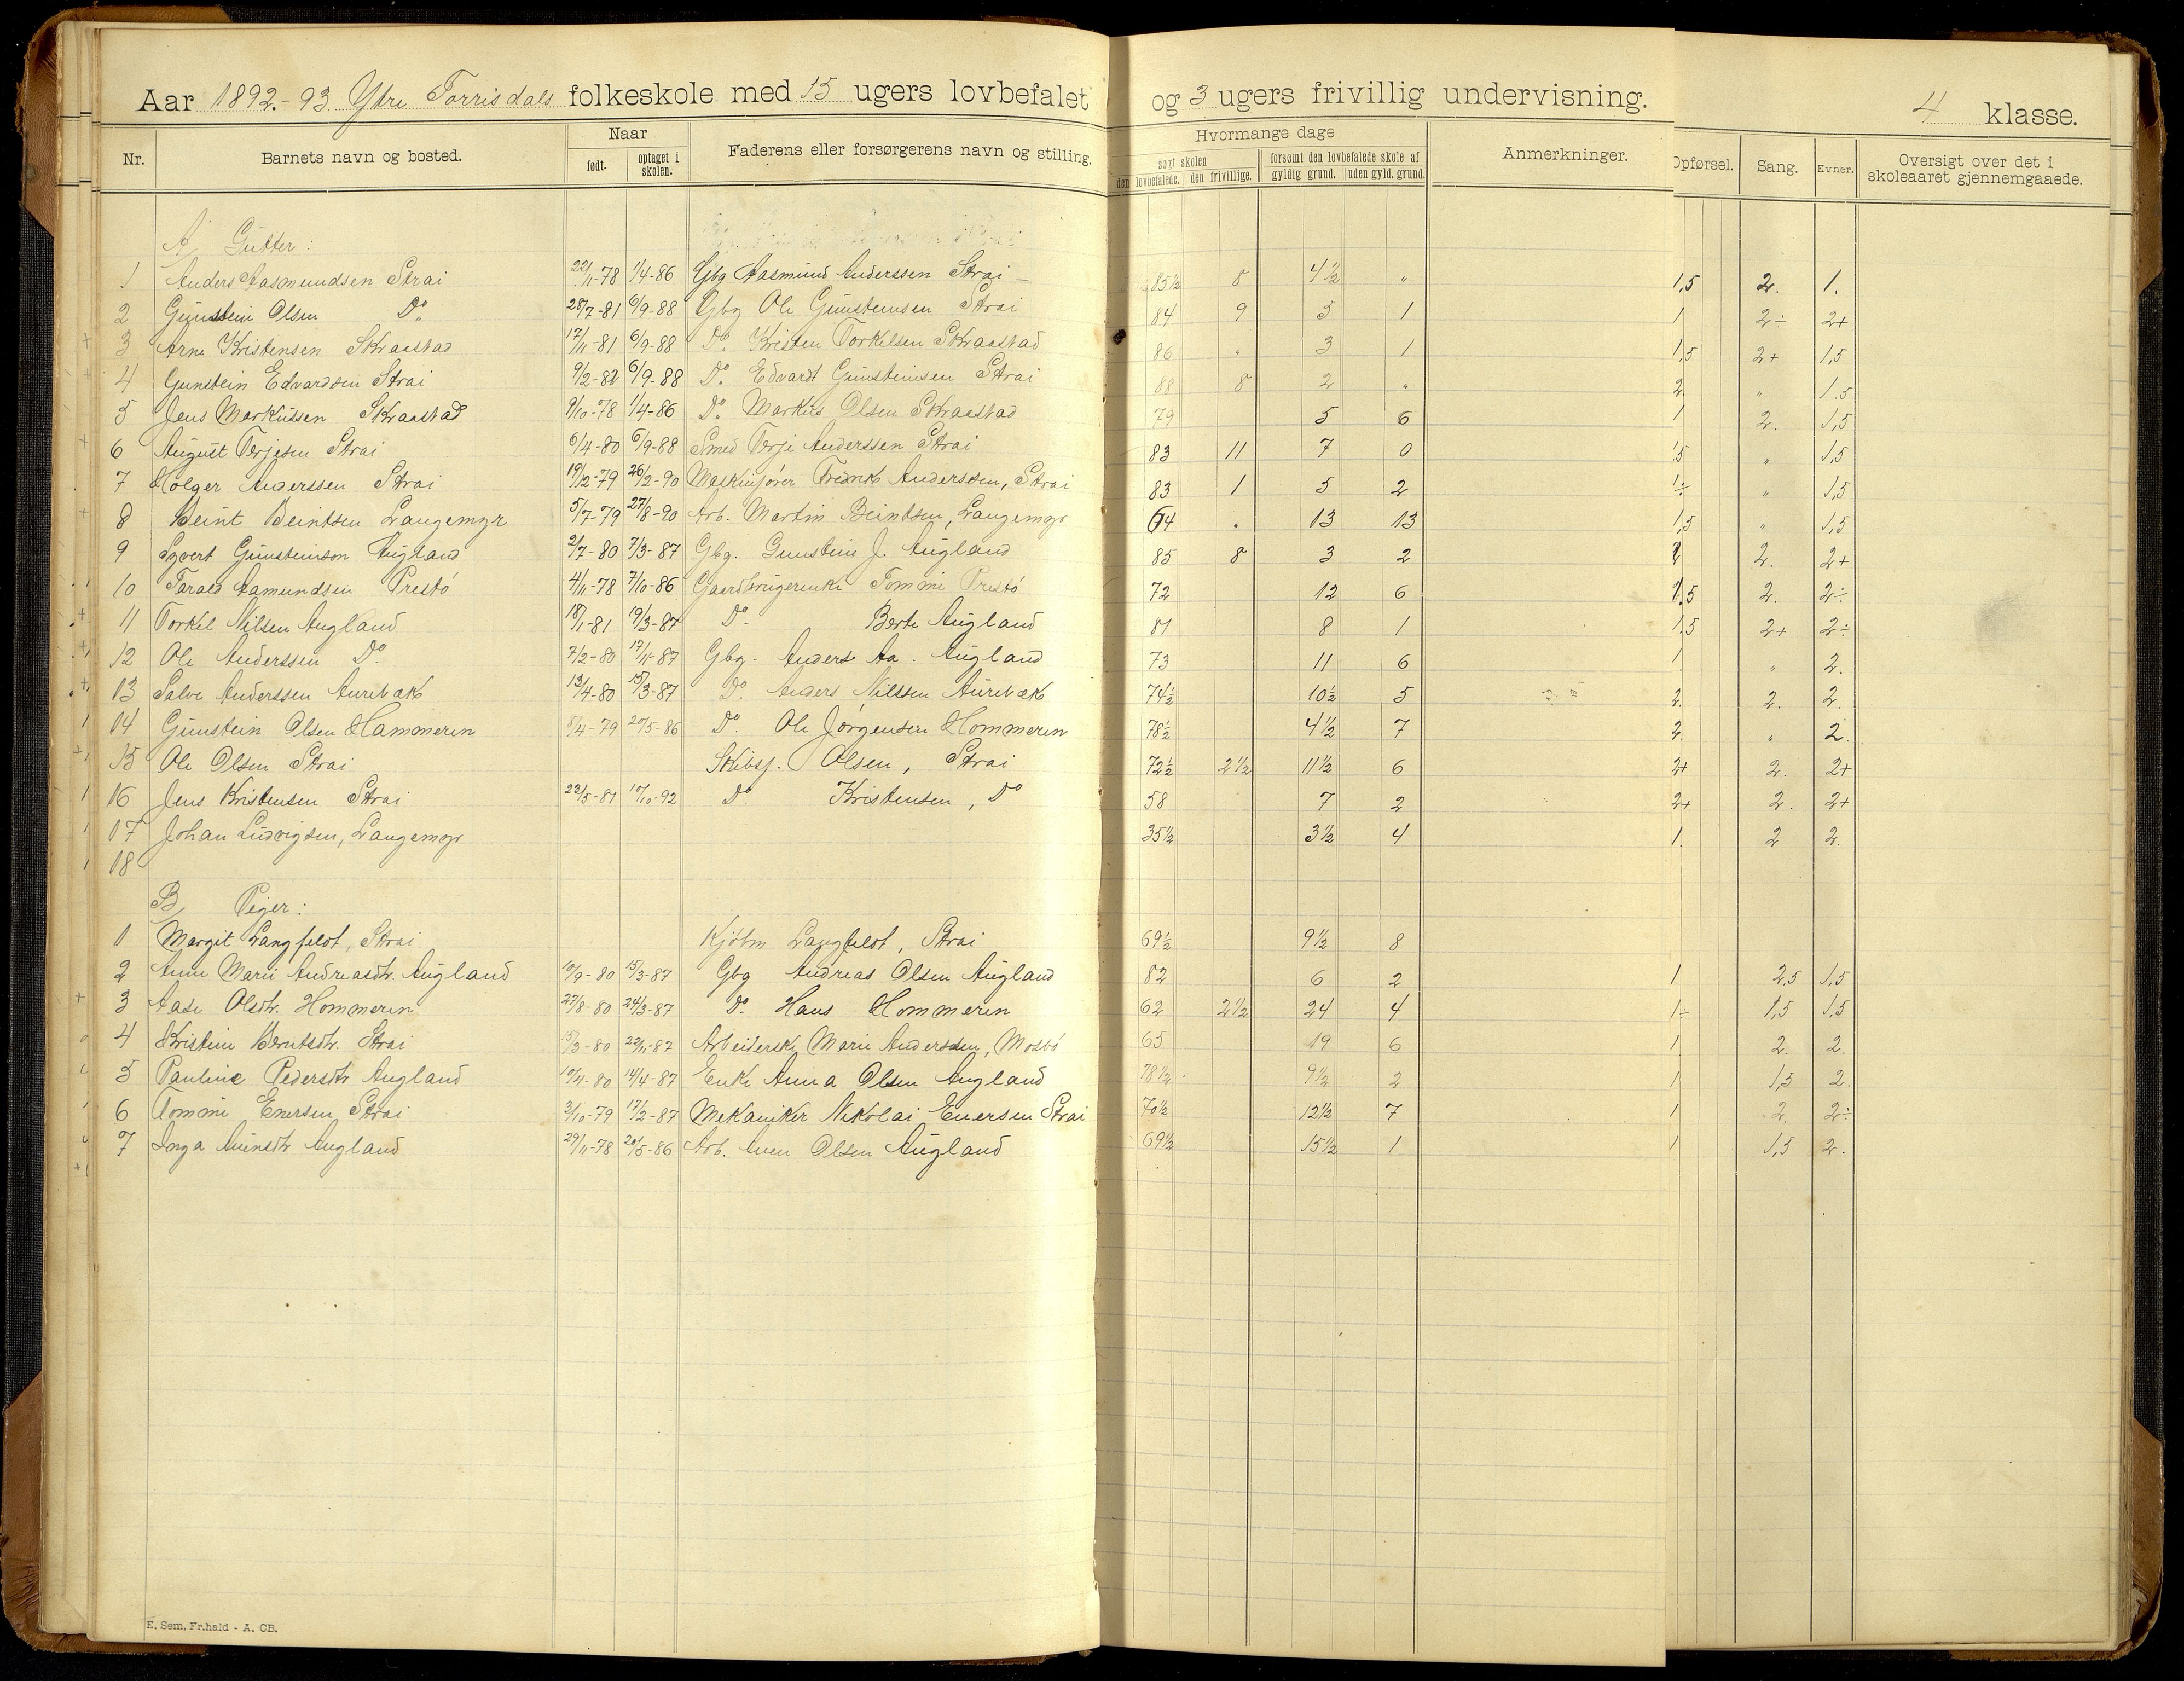 Aar 1892.-93 Ytre Torrisdals folkeskole med 15 ugers lovbefalet og 3 ugers frivillig undervisning. 4 klasse.
Nr. Barnets navn og bosted. Naar født. optaget i skolen. Faderens eller forsørgerens navn og stilling. Hvormange dage søgt skolen den lovbefalede. den frivillige. forsømt den lovbefalede skole af gyldig grund. uden gyld. grund. Anmerkninger. Opførsel. Sang. Evner. Oversigt over det i skoleaaret gjennemgaaede.
A, Gutter:
1 Anders Aasmundsen Strai 22/11-78 1/4-86 Gbg Aasmund Anderssen Strai - 85½ 8 4½ " 1,5 2. 1.
2 Gunstein Olsen Do 28/7-81 6/9-88 Gbg Ole Gunsteinsen Strai 84 9 5 1 1 2÷ 2+
3 Arne Kristensen Skraastad 17/11-81 6/9-88 Do. Kristen Torkilsen Skraastad 86 " 3 1 1,5 2+ 1,5
4 Gunstein Edvardsen Strai 9/2-82 6/9-88 Do. Edvardt Gunsteinsen Strai 88 8 2 " 2. " 1.5
5 Jens Markussen Skraastad 9/10-78 1/4-86 Do. Markus Olsen Skraastad 79 5 6 1 2. 1,5
6 August Terjesen Strai 6/4-80 6/9-88 Smed Terje Anderssen Strai 83 11 7 0 1,5 " 1,5
7 Holger Anderssen Strai 19/12-79 26/2-90 Maskinfører Fredrik Anderssen, Strai 83 1 5 2 1÷ " 1,5
8 Beint Beintsen Langemyr 5/7-79 27/8-90 Arb. Martin Beintsen, Langemyr 64 " 13 13 1,5 " 1,5
9 Syvert Gunsteinson Augland 2/7-80 7/3-87 Gbg. Gunstein J. Augland 85 8 3 2 2 2. 2+
10 Tarald Aamundsen Prestø 4/11-78 7/10-86 Gaardbrugerenke Tomine Prestø 72 12 6 1,5 2. 2÷
11 Torkel Nilsen Augland 18/1-81 19/3-87 Do. Berte Augland 81 8 1 1.5 2+ 2÷
12 Ole Anderssen Do. 7/2-80 17/11-87 Gbg. Anders Aa. Augland 73 11 6 1 " 2.
13 Salve Anderssen Aurebæk 13/4-80 15/3-87 Do. Anders Nilssen Aurebæk 74½ 10½ 5 2. 2. 2.
14 Gunstein Olsen Hammeren 8/4-79 20/5-86 Do. Ole Jørgensen Hommeren 78½ 4½ 7 2 " 2.
15 Ole Olsen Strai Skibsf. Olsen, Strai 72½ 2½ 11½ 6 2+ 2. 2+
16 Jens Kristensen Strai 22/5-81 10/10-92 Do. Kristensen, Do 58 7 2 2+ 2. 2+
17 Johan Ludvigsen, Langemyr 35½ 3½ 4 1. 2 2.
18
B, Piger:
1 Margit Langfeldt, Strai Kjøbm Langfeldt, Strai 69½ 9½ 8
2 Anne Marie Andreasdtr. Augland 10/9-80 15/3-87 Gbg Andreas Olsen Augland 82 6 2 1 2,5 1,5
3 Aase Olsdtr. Hommeren 27/8-80 24/3-87 Do. Hans Hommeren 62 2½ 24 4 1÷ 1,5 1,5
4 Kristine Berntsdtr. Strai 15/3-80 22/11-87 Arbeiderske Marie Anderssen, Mosbø 65 19 6 1 2. 2.
5 Pauline Pedersdtr Augland 10/4-80 14/4-87 Enke Anna Olsen Augland 78½ 9½ 2 1 1,5 2.
6 Tomine Enersen, Strai 3/10-79 17/2-87 Mekaniker Nikolai Enersen Strai 70½ 12½ 7 1 2. 2÷
7 Inga Auensdtr Augland 29/11-78 20/5-86 Arb. Auen Olsen Augland 69½ 15½ 1 1 1,5 2.
E. Sem, Fr.hald - A. CB.